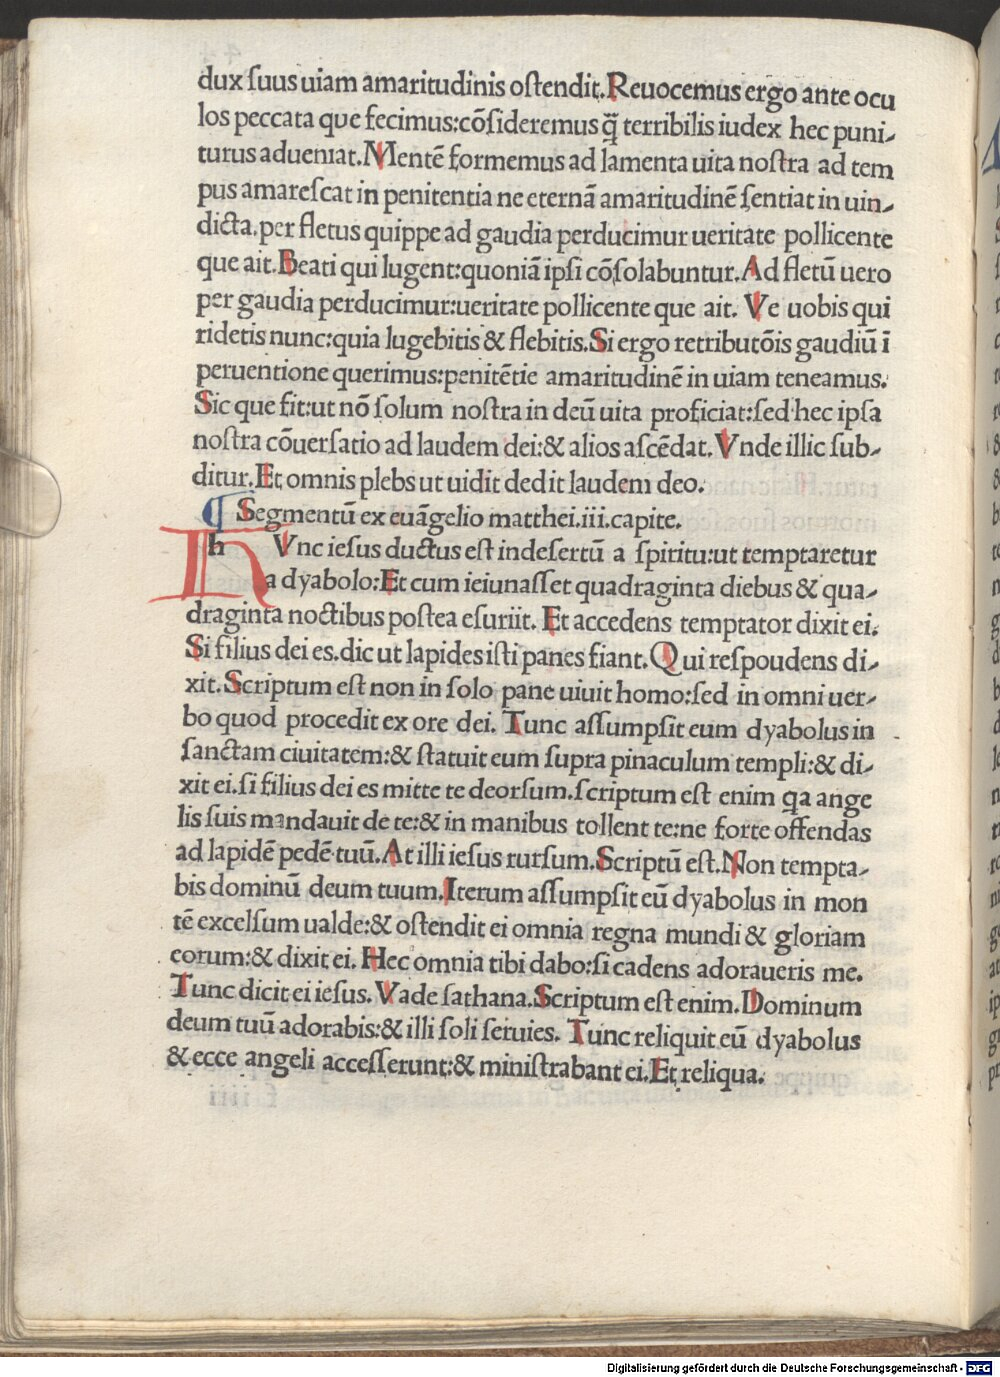 dux ſuus uiam amaritudinis oſtendit.Reuocemus ergo ante ocu
los peccata que fecimus:cōſideremus q̄ terribilis iudex hec puni-
turus adueniat.Mentē formemus ad lamenta uita noſtra ad tem
pus amareſcat in penitentia ne eternā amaritudinē ſentiat in uin-
dicta.per fletus quippe ad gaudia perducimur ueritate pollicente
que ait.Beati qui lugent:quoniā ipſi cōſolabuntur.Ad fletū uero
per gaudia perducimur:ueritate pollicente que ait. Ve uobis qui
ridetis nunc:quia lugebitis & flebitis.Si ergo retributōis gaudiū ī
peruentione querimus:penitētie amaritudinē in uiam teneamus.
Sic que fit:ut nō ſolum noſtra in deū uita proficiat:ſed hec ipſa
noſtra cōuerſatio ad laudem dei:& alios aſcēdat.Vnde illic ſub-
ditur.Et omnis plebs ut uidit dedit laudem deo.
¶ Segmentū ex euāgelio matthei.iii.capite.
h Vnc ieſus ductus eſt in deſertū a ſpiritu:ut temptaretur
a dyabolo:Et cum ieiunaſſet quadraginta diebus & qua-
draginta noctibus poſtea eſuriit. Et accedens temptator dixit ei.
Si filius dei es.dic ut lapides iſti panes fiant.Qui reſpoudens di-
xit.Scriptum eſt non in ſolo pane uiuit homo:ſed in omni uer-
bo quod procedit ex ore dei. Tunc aſſumpſit eum dyabolus in
ſanctam ciuitatem:& ſtatuit eum ſupra pinaculum templi:& di-
xit ei.ſi filius dei es mitte te deorſum.ſcriptum eſt enim qa ange
lis ſuis mandauit de te:& in manibus tollent te:ne forte offendas
ad lapidē pedē tuū.At illi ieſus rurſum.Scriptū eſt.Non tempta-
bis dominū deum tuum.Iterum aſſumpſit eū dyabolus in mon
tē excelſum ualde:& oſtendit ei omnia regna mundi & gloriam
eorum:& dixit ei. Hec omnia tibi dabo:ſi cadens adoraueris me.
Tunc dicit ei ieſus. Vade ſathana.Scriptum eſt enim.Dominum
deum tuū adorabis:& illi ſoli ſeruies. Tunc reliquit eū dyabolus
& ecce angeli acceſſerunt:& miniſtrabant ei.Et reliqua.
Digitalisierung gefördert durch die Deutsche Forschungsgemeinschaft - DFG